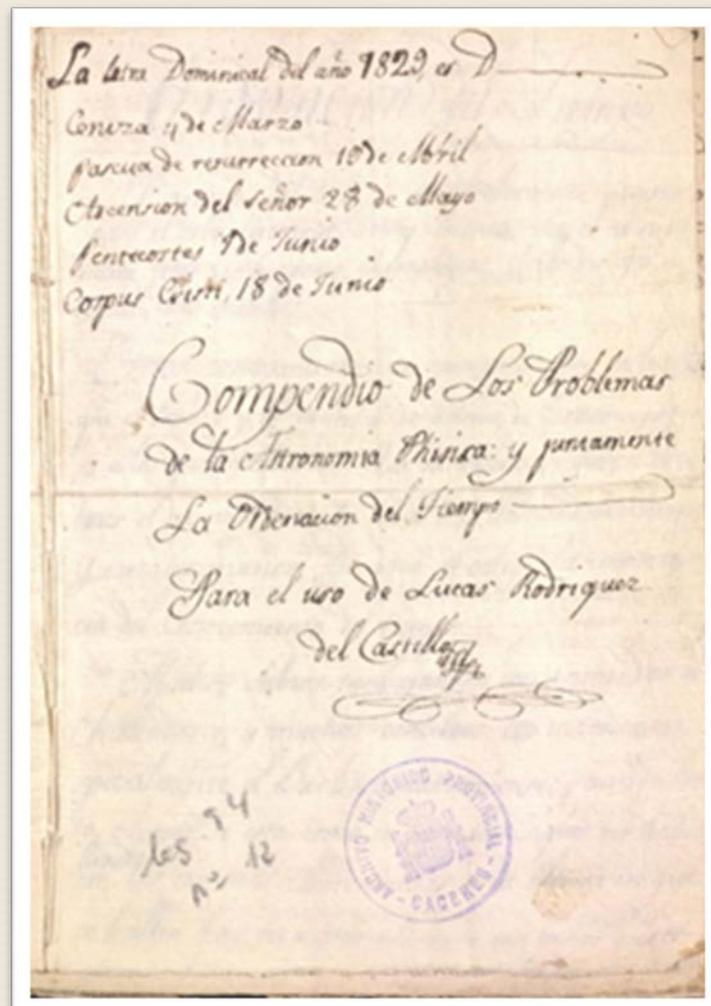 La letra Dominical del año 1829, es D
Ceniza 4 de Marzo
Pascua de resurreccion 19 de Abril
Ascension del Señor 28 de Mayo
Pentecostes 7 de Junio
Corpus Cristi, 18 de Junio
Compendio de Los Problemas
de la Astronomia Phisica: y juntamente
La Ordenacion del Tiempo
Para el uso de Lucas Rodriguez
del Castillo
ARCHIVO HISTÓRICO PROVINCIAL - CACERES -
Leg 94
nº 12